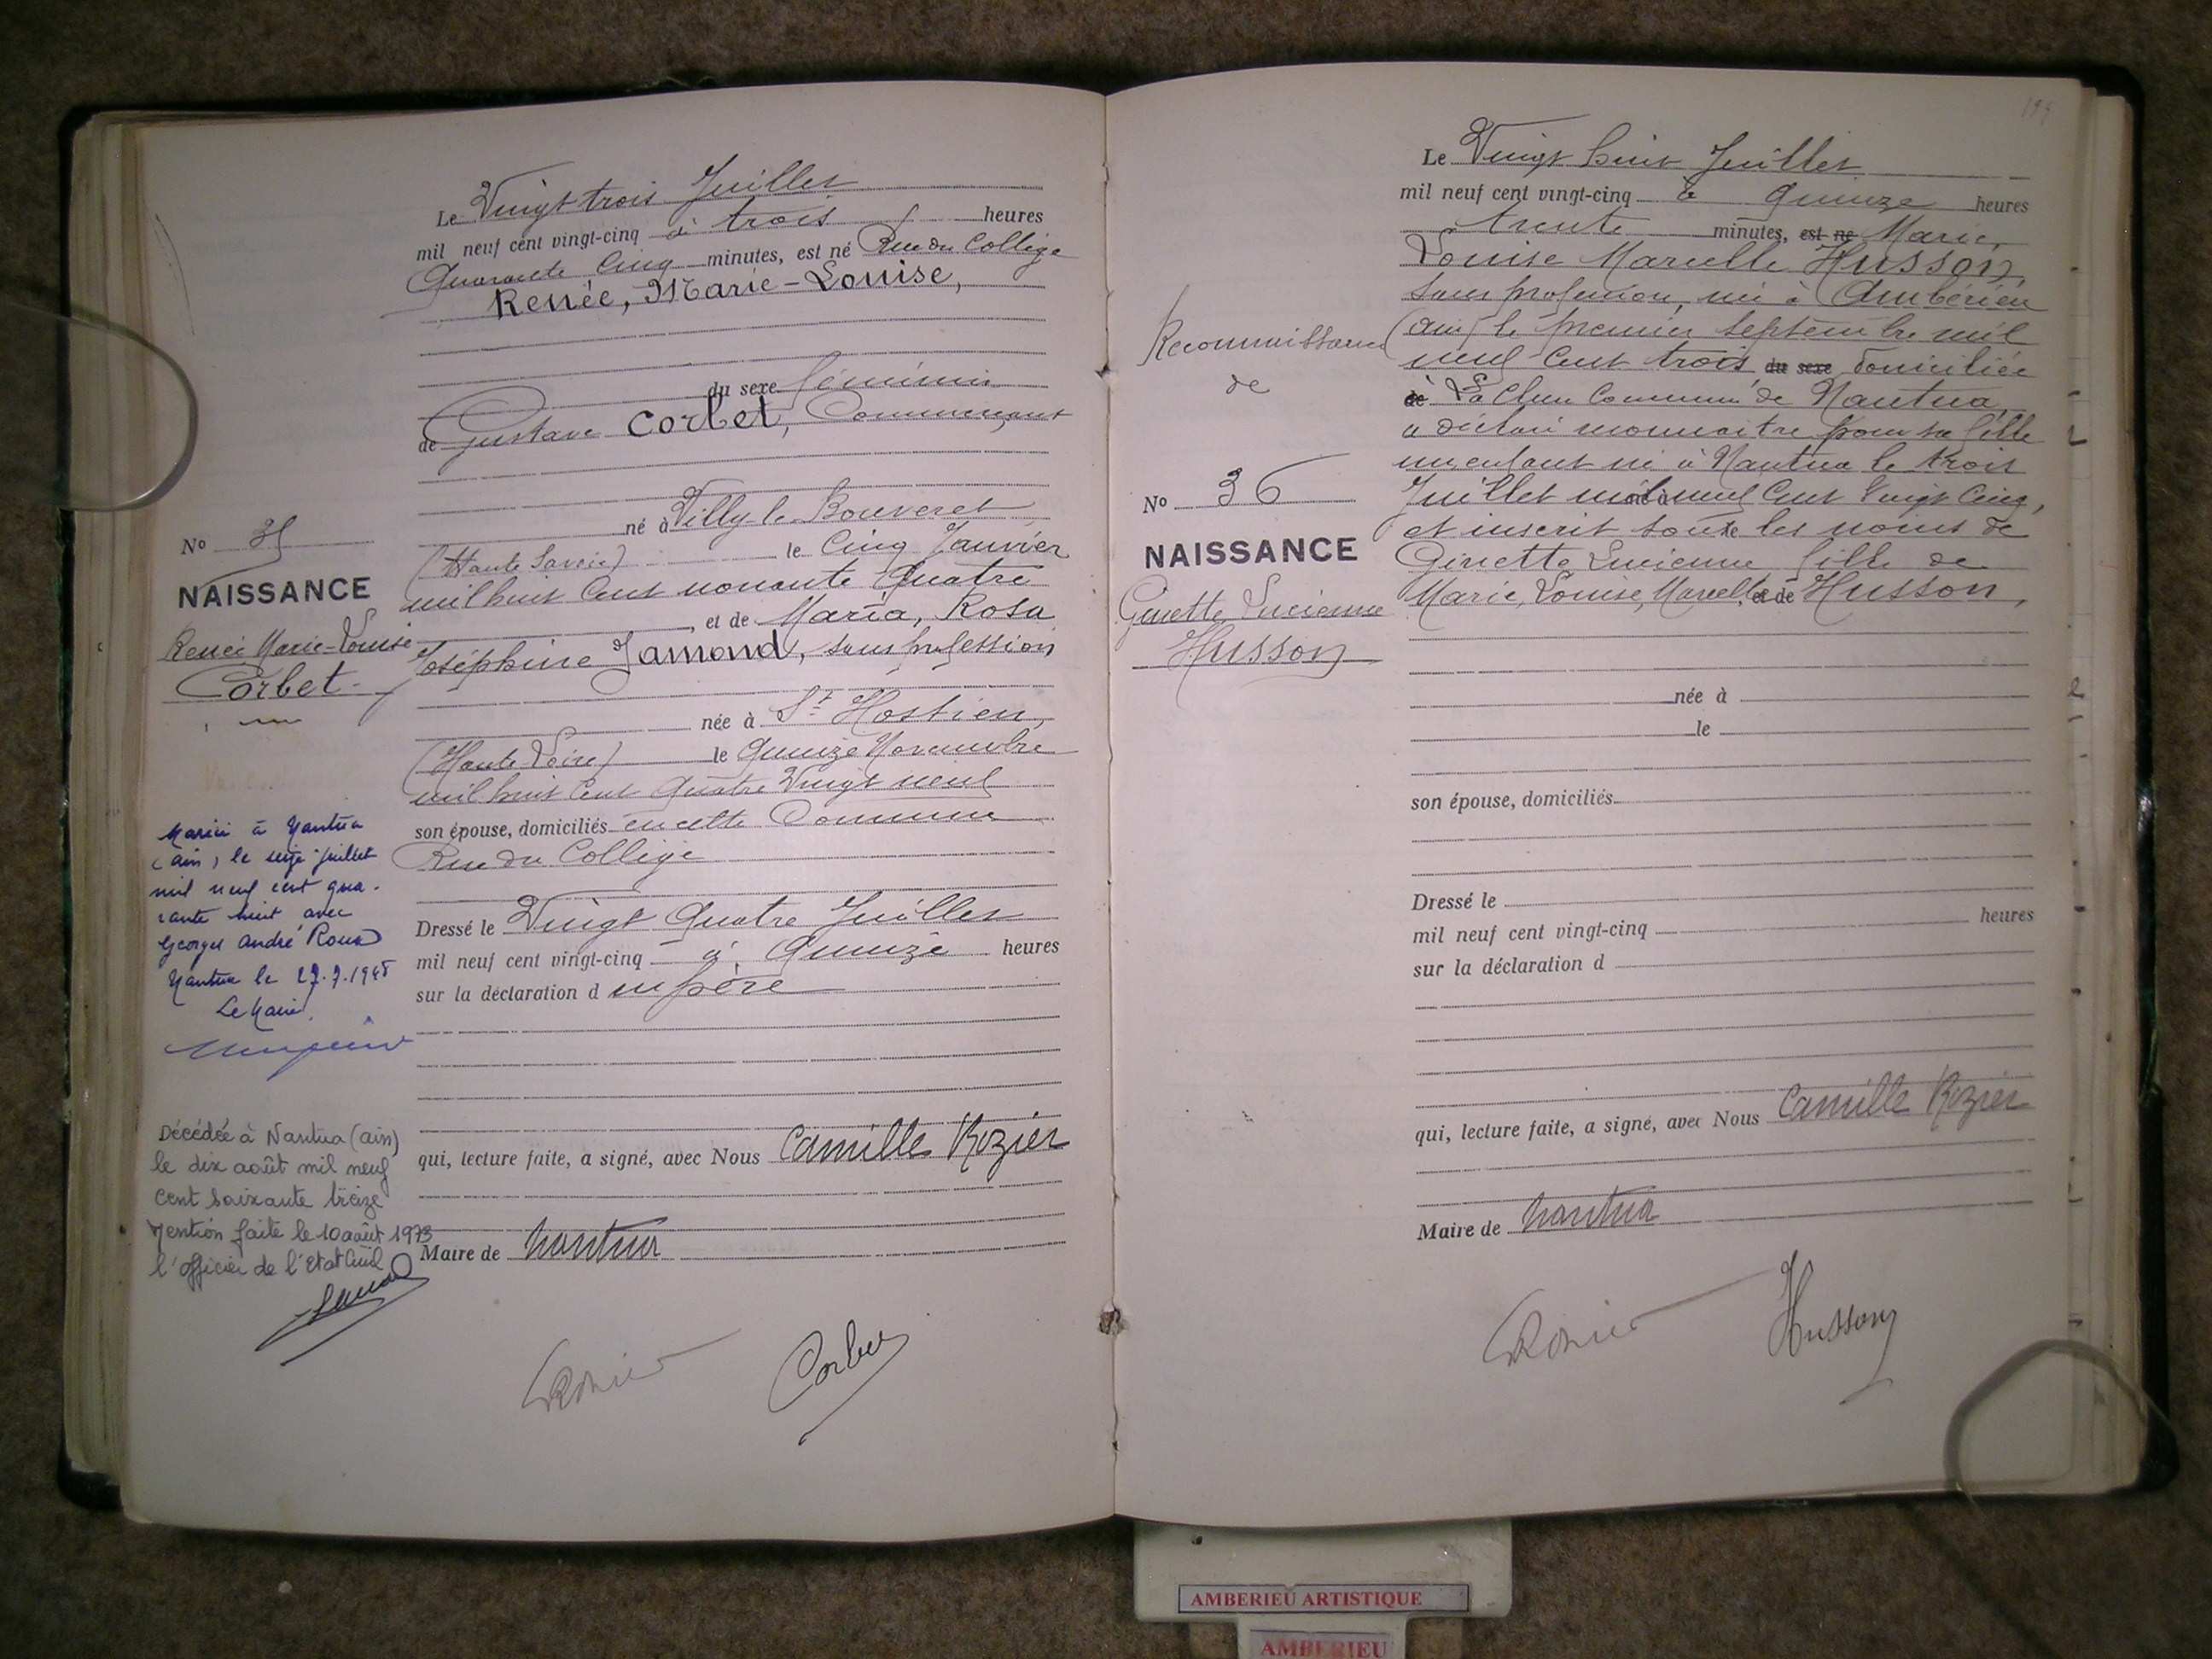 Le Vingt trois Juillet
mil neuf cent vingt-cinq à trois heures
Quarante Cinq minutes, est né Rue du Collège
Renée, Marie-Louise,
du sexe féminin
de Gustave Corbet, Commerçant
né à Villy-le-Bouveret
(Haute Savoie) le Cinq Janvier
mil huit Cent nonante Quatre
, et de Maria, Rosa
Joséphine Jamond, sans profession
née à St Hostien,
(Haute Loire) le Quinze Novembre
mil huit Cent Quatre Vingt neuf
son épouse, domiciliés en cette Commune
Rue du Collège
Dressé le Vingt Quatre Juillet
mil neuf cent vingt-cinq à Quinze heures
sur la déclaration d u père
qui, lecture faite, a signé, avec Nous Camille Rozier
Maire de Nantua
Corbet
No 35
NAISSANCE
Renée Marie-Louise
Corbet
Mariée à Nantua
(ain) le seize juillet
mil neuf cent qua-
rante huit avec
Georges André Roux
Nantua le 27.7.1948
Le Maire
Décédée à Nantua (ain)
le dix août mil neuf
cent soixante treize
Mention faite le 10 août 1973
l'officier de l'Etat Civil
Le Vingt huit Juillet
mil neuf cent vingt-cinq à Quinze heures
trente minutes, est né Marie,
Louise Marcelle Husson,
sans profession, née à Ambérieu
(ain) le premier Septembre mil
neuf Cent trois, du sexe domiciliée
de à La Cluse Commune de Nantua,
a déclaré reconnaitre pour sa fille
un enfant né à Nantua le trois
Juillet mil neuf Cent Vingt Cinq,
et inscrit sous les noms de
Ginette Lucienne fille de
Marie, Louise, Marcelle, et de Husson,
née à
le
son épouse, domiciliés
Dressé le
mil neuf cent vingt-cinq heures
sur la déclaration d
qui, lecture faite, a signé, avec Nous Camille Rozier
Maire de Nantua
Husson
Reconnaissance
de
No 36
NAISSANCE
Ginette Lucienne
Husson
AMBERIEU ARTISTIQUE
AMBERIEU